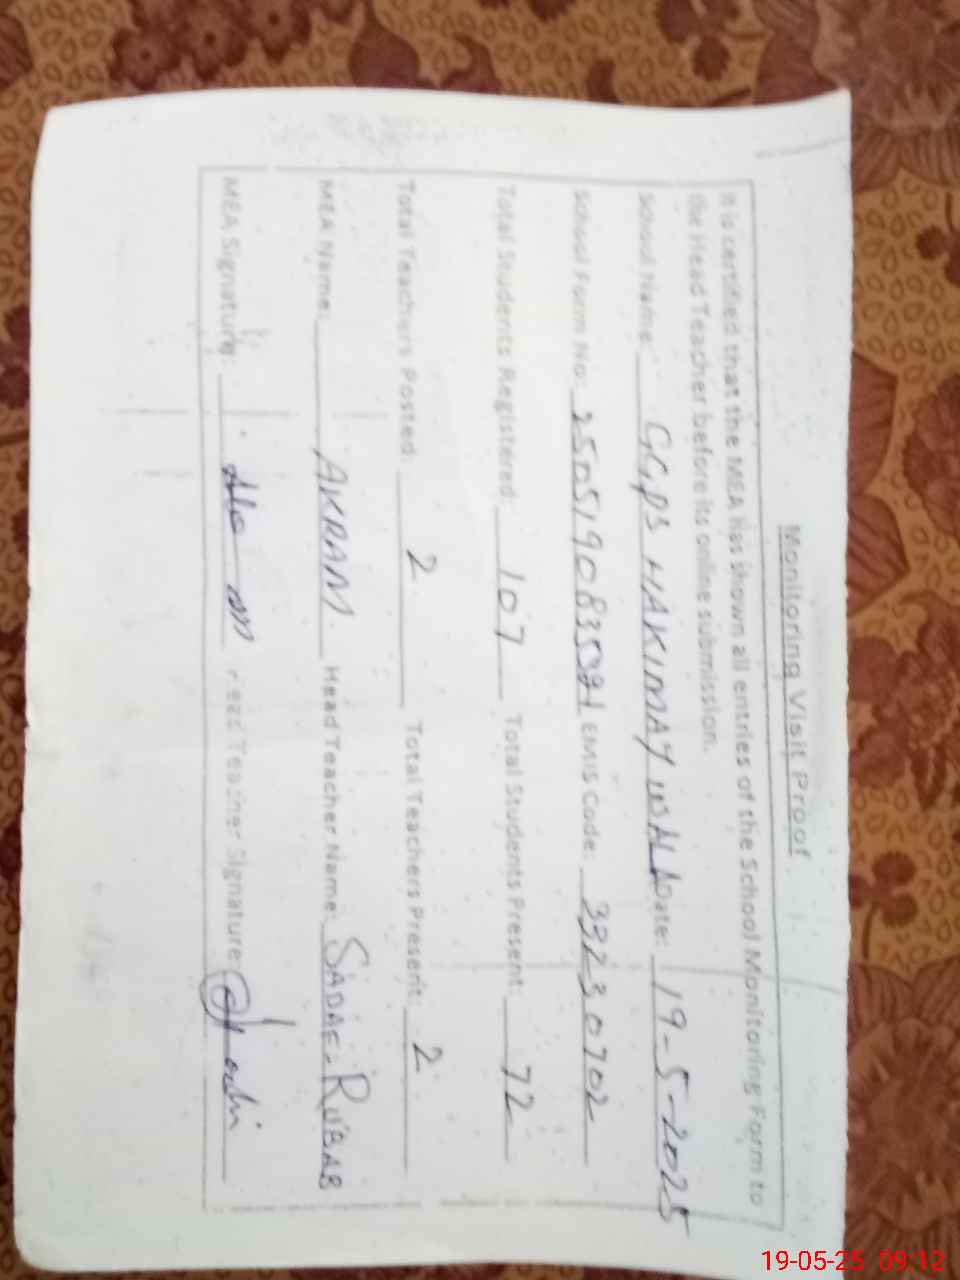 Monitoring Visit Proof
It is certified that the MEA has shown all entries of the School Monitoring Form to
the Head Teacher before its online submission.
School Name GGPS HAKIMAY WALA Date: 19-5-2025
School Form No: EMIS Code: 39230702
Total Students Registered: 107 Total Students Present: 72
Total Teachers Posted: 2 Total Teachers Present: 2
MEA Name: AKRAM Head Teacher Name: SADAF RUBAB
MEA Signature: Head Teacher Signature:
19-05-25 09:12